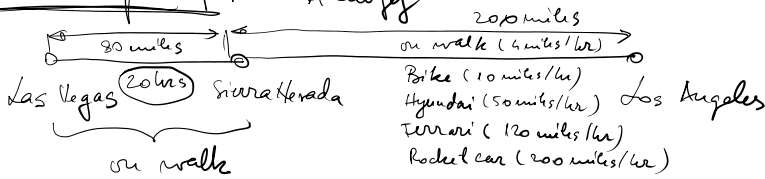 200 miles
80 miles
on walk (4 miles/hr)
Las Vegas 20 hrs Sierra Nevada
Bike (10 miles/hr)
Hyundai (50 miles/hr) Los Angeles
Ferrari (120 miles/hr)
Rocket car (200 miles/hr)
on walk